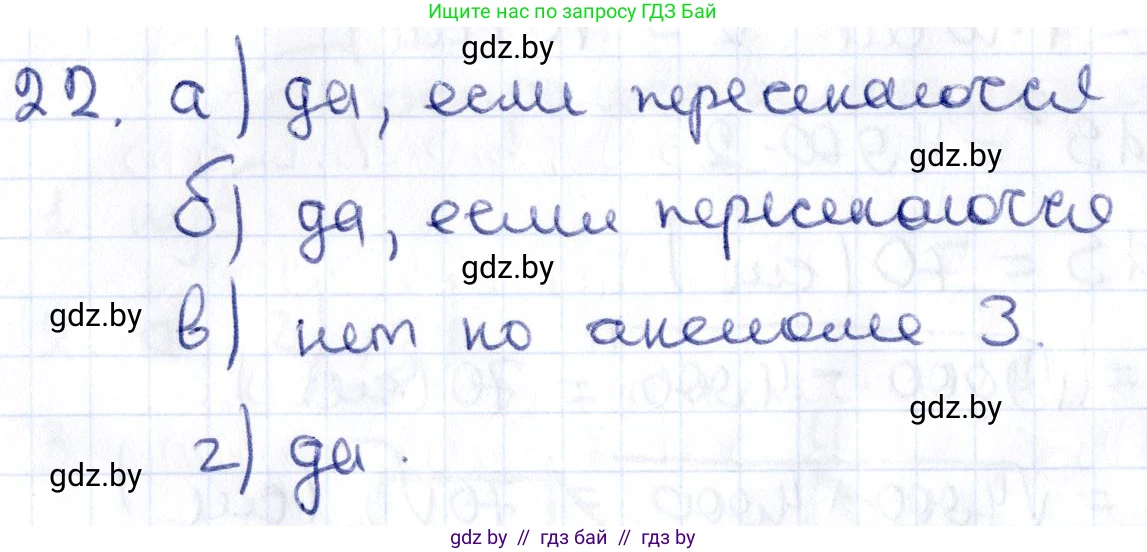 Ищите нас по запросу ГДЗ Бай
gdz.by
22. а) да, если пересекаются
gdz.by
б) да, если пересекаются
gdz.by
gdz.by
в) нет по аксиоме 3.
gdz.by
г) да.
gdz.by
gdz by // гдз бай // гдз by